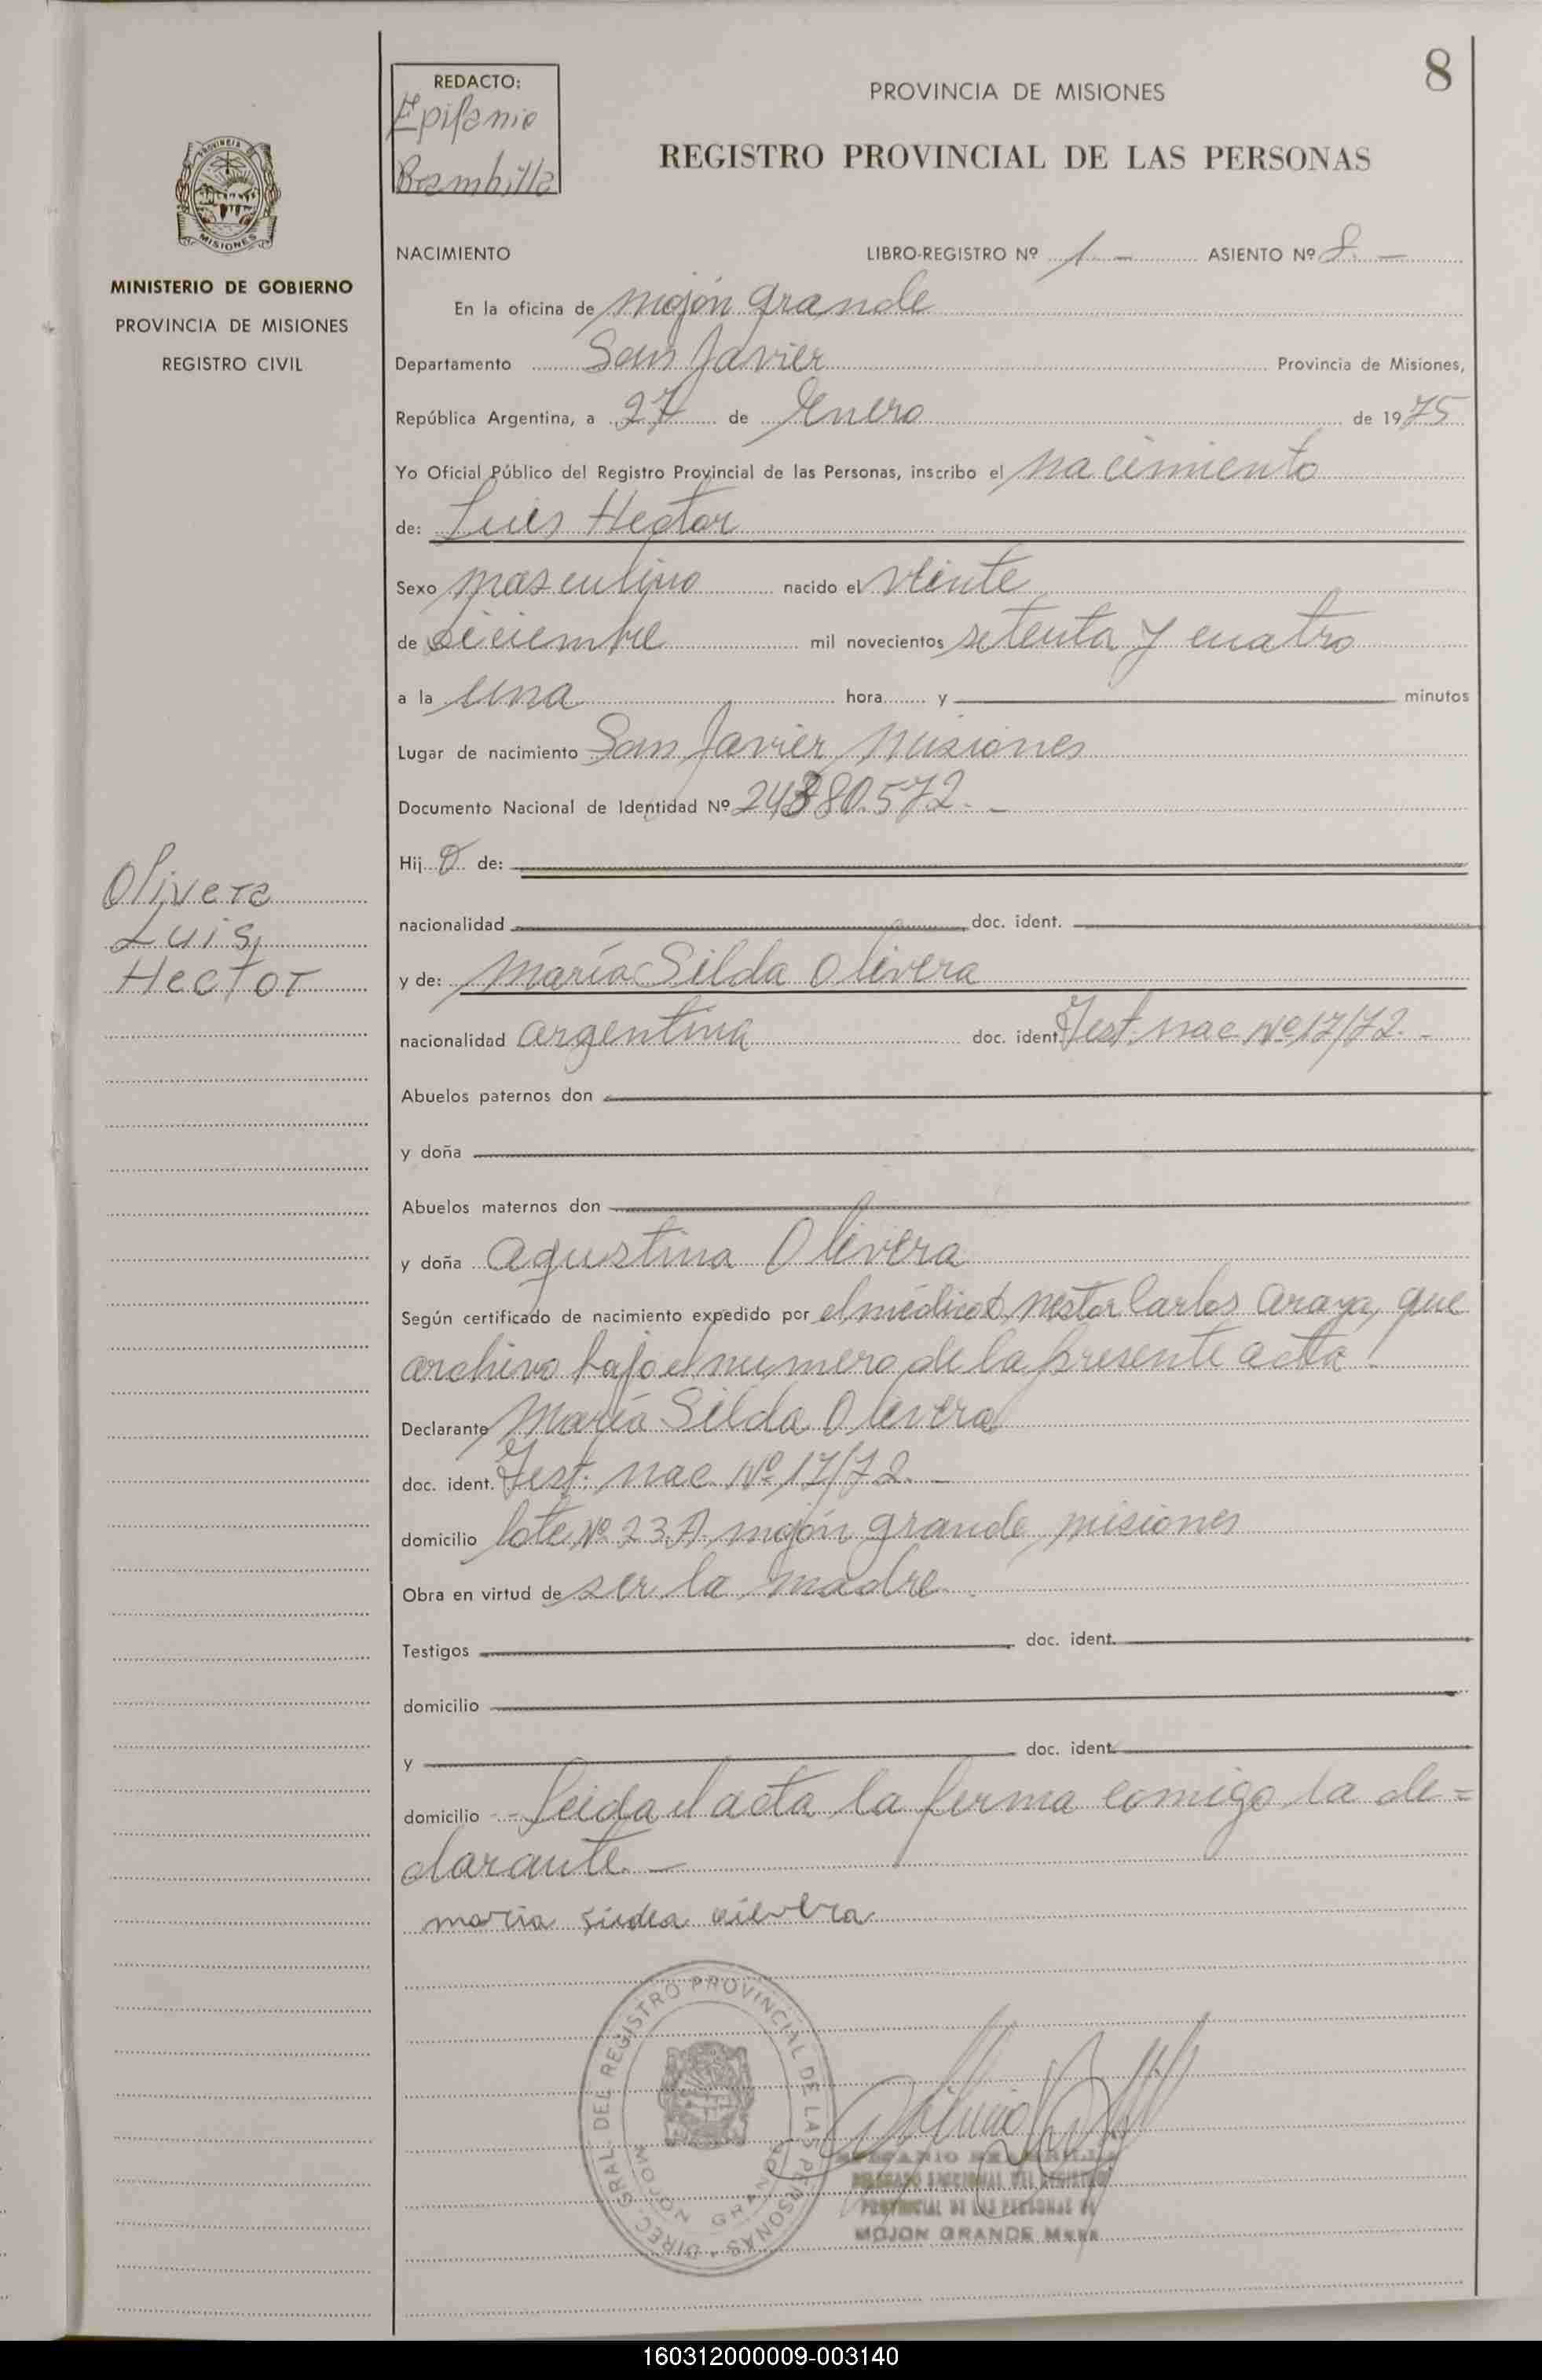 8
REDACTO:
Epifanio
Brambilla
PROVINCIA DE MISIONES
REGISTRO PROVINCIAL DE LAS PERSONAS
PROVINCIA DE
MISIONES
MINISTERIO DE GOBIERNO
PROVINCIA DE MISIONES
REGISTRO CIVIL
NACIMIENTO LIBRO-REGISTRO Nº 1.- ASIENTO Nº 8.-
En la oficina de mojón grande
Departamento San Javier Provincia de Misiones,
República Argentina, a 27 de Enero de 1975
Yo Oficial Público del Registro Provincial de las Personas, inscribo el nacimiento
de: Luis Hector
Sexo masculino nacido el veinte
de diciembre mil novecientos setenta y cuatro
a la una hora y minutos
Lugar de nacimiento San Javier, Misiones
Documento Nacional de Identidad Nº 24380.572.-
Hij o de:
nacionalidad doc. ident.
Olivera
Luis,
Hector
y de: María Silda Olivera
nacionalidad argentina doc. ident. Test. nac Nº 17/72.-
Abuelos paternos don
y doña
Abuelos maternos don
y doña agustina Olivera
Según certificado de nacimiento expedido por el médico d. nestor Carlos Araya, que
archivo bajo el numero de la presente acta.
Declarante María Silda Olivera
doc. ident. Test. nac. Nº 17/72.-
domicilio lote Nº 23.A. mojón grande, misiones
Obra en virtud de ser la madre.
Testigos doc. ident.
domicilio
y doc. ident.
domicilio - Leida el acta la firma comigo la de=
clarante.-
maria silda olivera
DIREC. GRAL. DEL REGISTRO PROVINCIAL DE LAS PERSONAS
MOJON GRANDE
EPIFANIO BRAMBILLA
DELEGADO SECCIONAL DEL REGISTRO
PROVINCIAL DE LAS PERSONAS DE
MOJON GRANDE Mnes
160312000009-003140